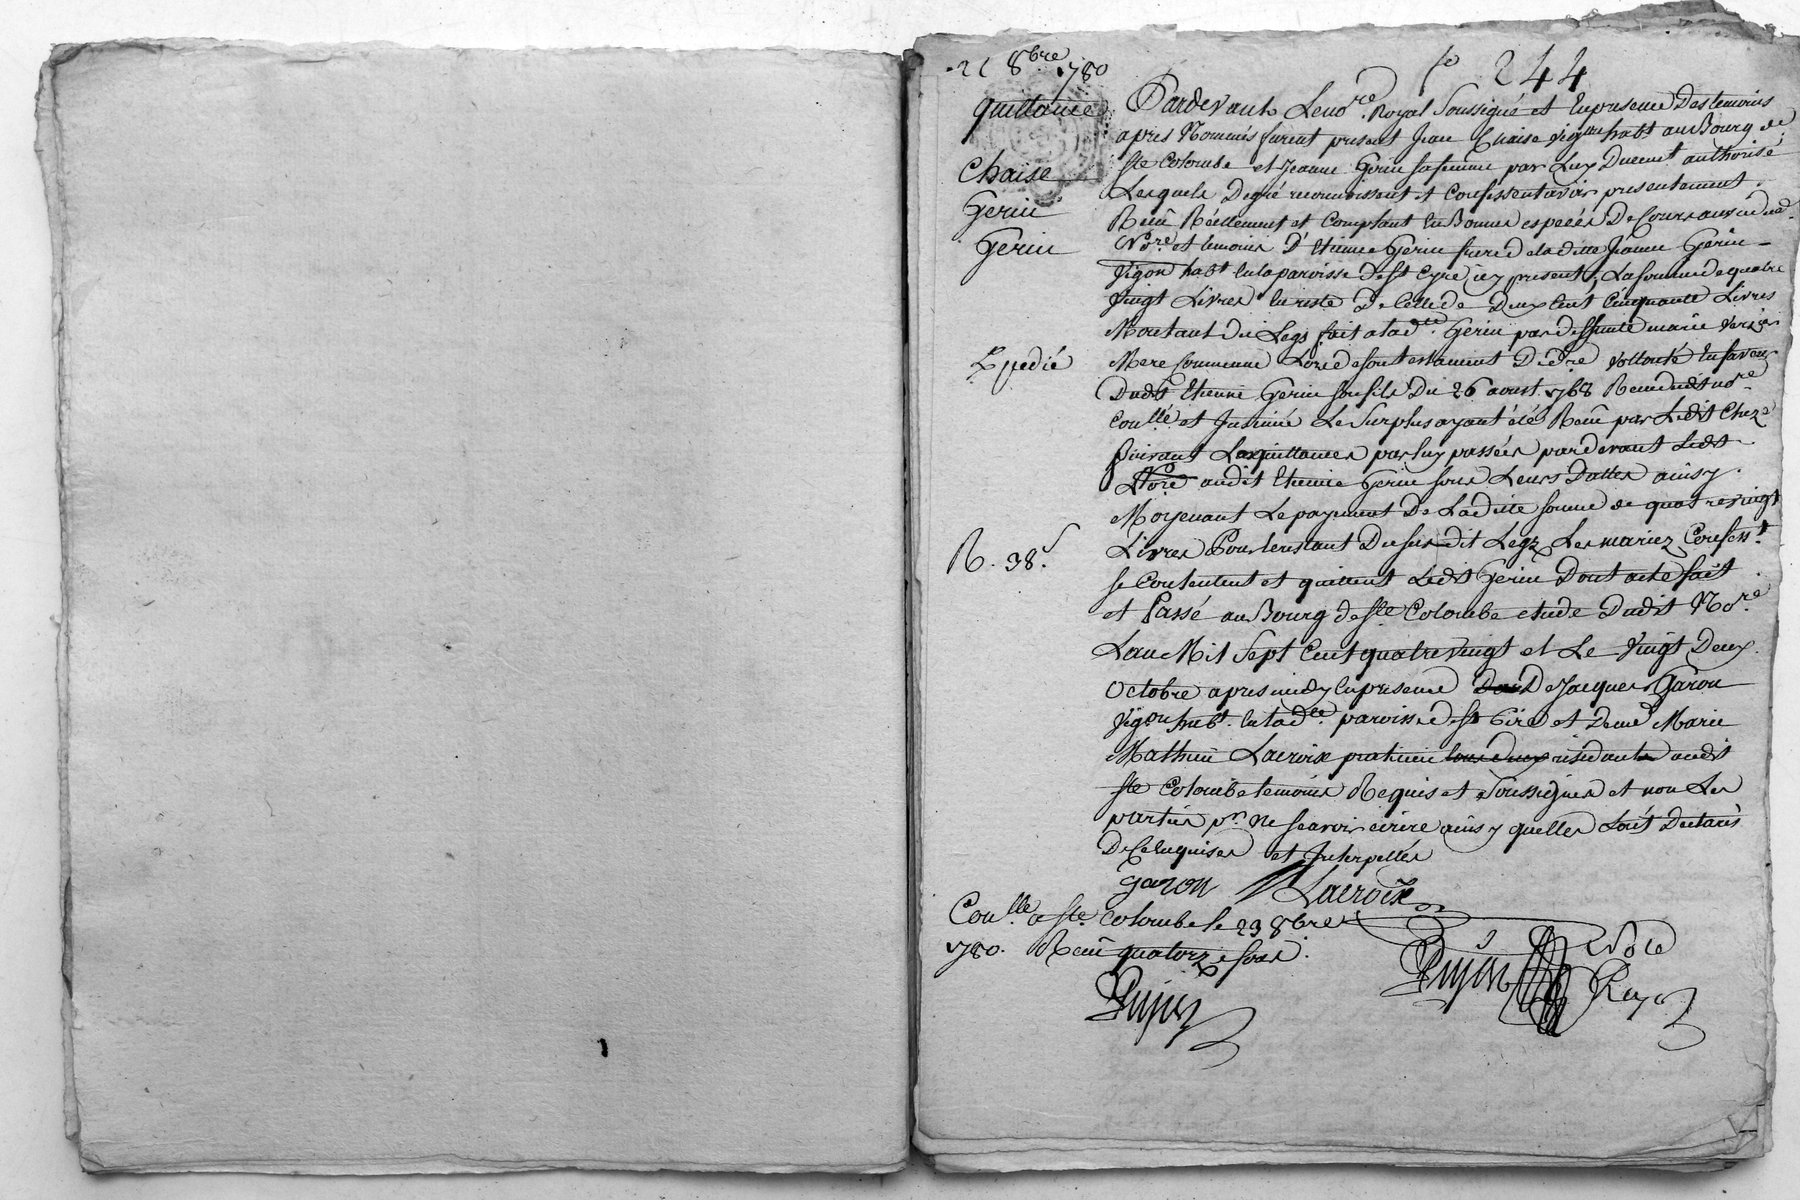 22 8bre 1780
fo 244
quittance
Chaise
Gerin
Gerin
Expedié
R. 38 s.
Pardevant Le nore. Royal Soussigné et En presence Des temoins
apres Nommés furent present Jean Chaise vigneron habt au Bourg de
Ste Colombe et Jeanne Gerin sa femme par Luy Duement authorisé
Lesquels De gré reconnoissent et Confessent avoir presentement
Receu Réellement et Comptant En Bonnes especes De Cours au vu dud.
Nore et temoins D'Etienne Gerin frere de la ditte Jeanne Gerin
Vigon habt En la paroisse de St Cyre icy present, La somme de quatre
Vingt Livres En reste De Celle de Deux Cent Cinquante Livres
Montant du Legs fait a lade. Gerin par deffunte marie
Mere Commune Lors de son testament De dre vollonté En faveur
Dudit Etienne Gerin son fils Du 26 aoust 1768 Receu dudit nore
Conllé et Insinué Le Surplus ayant été Receu par Ledit Cheze
suivant Les quittances par luy passées par devant Ledt
Nore audit Etienne Gerin sous Leurs Dattes ainsy
Moyenant Le payement De Laditte somme de quatrevingt
Livres Pour le restant Du susdit Legz Les mariez Confesst
se Contentent et quittent Ledit Gerin Dont acte fait
et Passé au Bourg de Ste Colombe etude Dudit Nore
L'an Mil Sept Cent quatre vingt et Le Vingt Deux
Octobre apres midy En presence De Jacques Garon
Vigon habt. En lade. paroisse de St Cire et De me Marie
Mathieu Lacroix praticien tous deux residants audit
Ste Colombe temoins Requis et Soussignés et non Les
parties pr. Ne scavoir ecrire ainsy quelles L'ont Declarés
De Ce Enquises et Interpellés
garon Lacroix
Conllé a Ste Colombe le 23 8bre
1780. Receu quatorze sous.
Pujos
Pujos
Nore
Roy